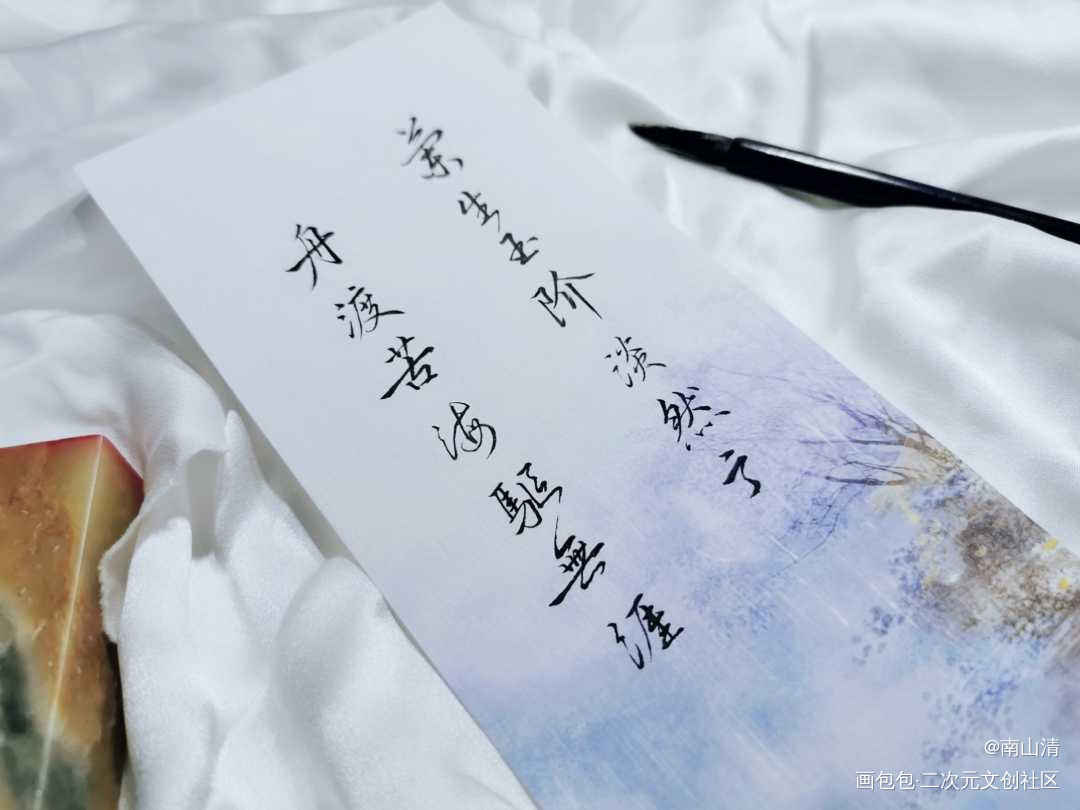 蘭生玉阶淡然了
舟渡苦海驅無涯
@南山清
画包包·二次元文创社区